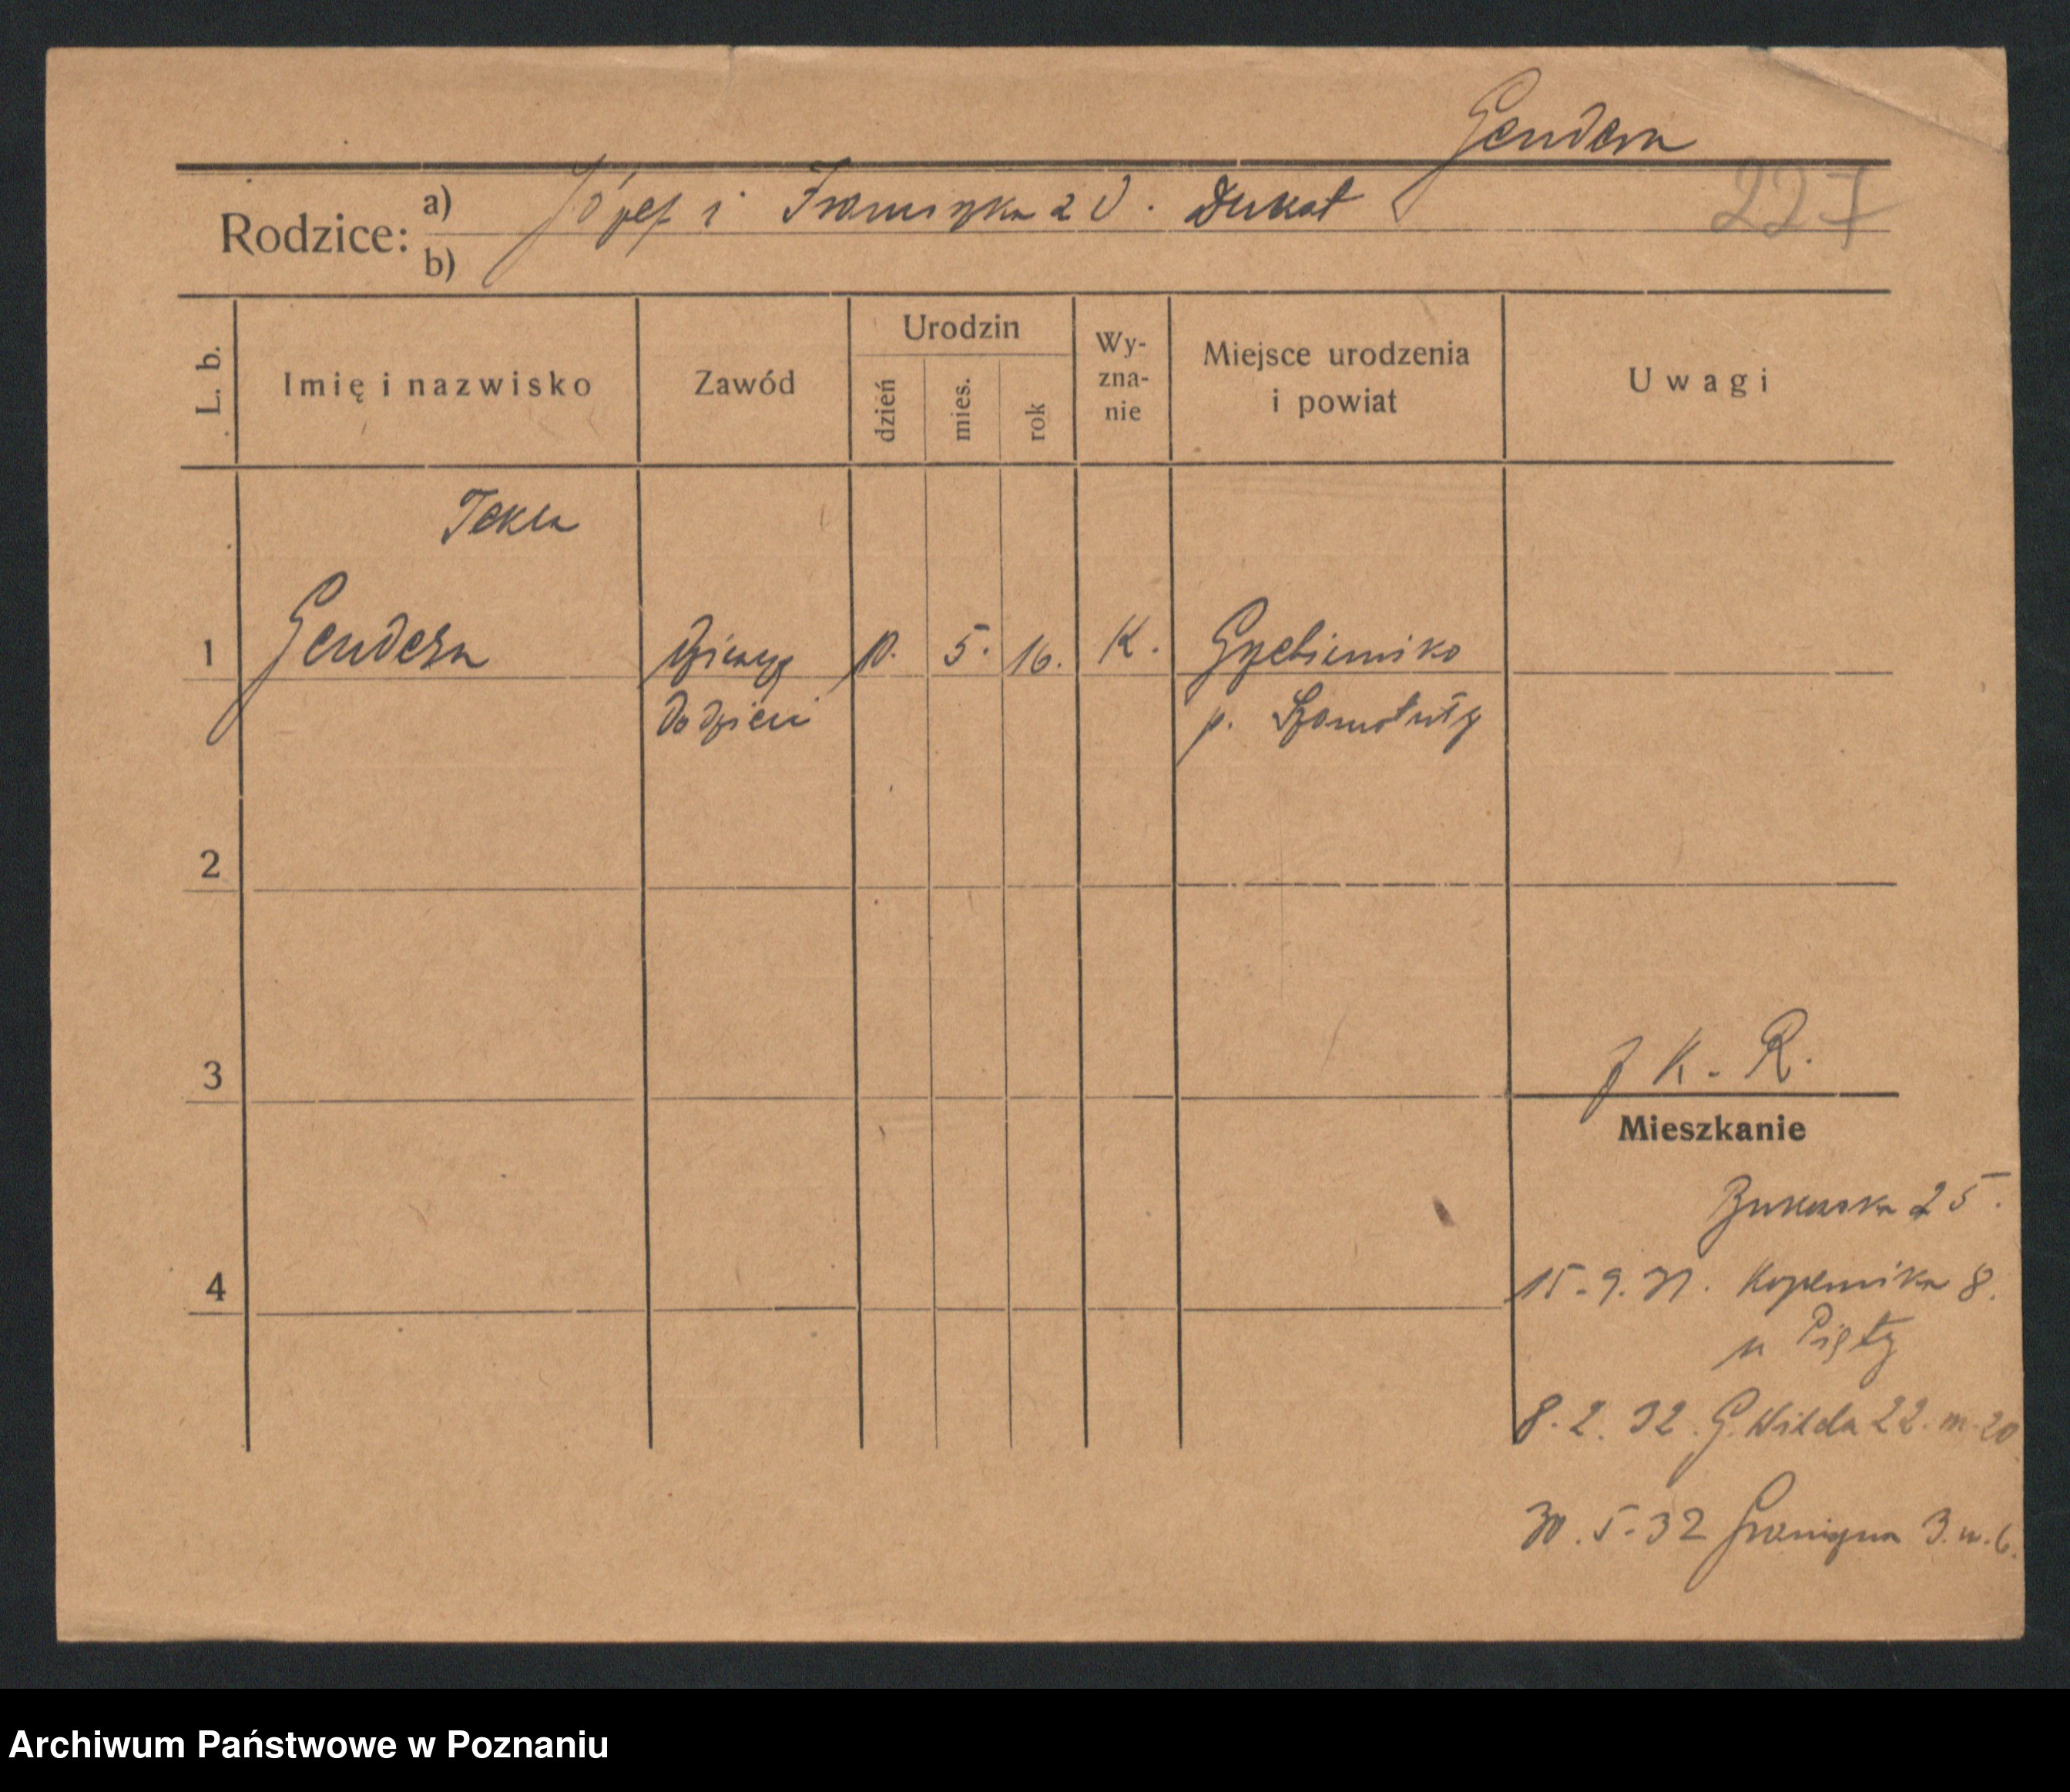 Gendera
227
Rodzice:
a) Józef i Franciszka z d. Dukat
b)
L. b.
Imię i nazwisko
Zawód
Urodzin
dzień
mies.
rok
Wy-
zna-
nie
Miejsce urodzenia
i powiat
Uwagi
Tekla
1 Gendera dziewcz. 10. 5. 16. K. Grzebienisko
do dzieci p. Szamotuły
2
3
K. R.
Mieszkanie
Bukowska 25.
4
15.9.31. Kopernika 8.
u Pięty
8.2.32. G. Wilda 22. m. 20
30.5.32 Graniczna 3. m. 6.
Archiwum Państwowe w Poznaniu